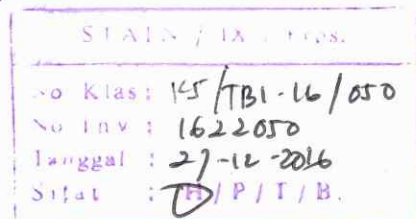 STAIN / IX
No Klas: KS/TBI-16/050
No Inv : 1622050
Tanggal : 27-12-2016
Sifat : H / P / T / B.